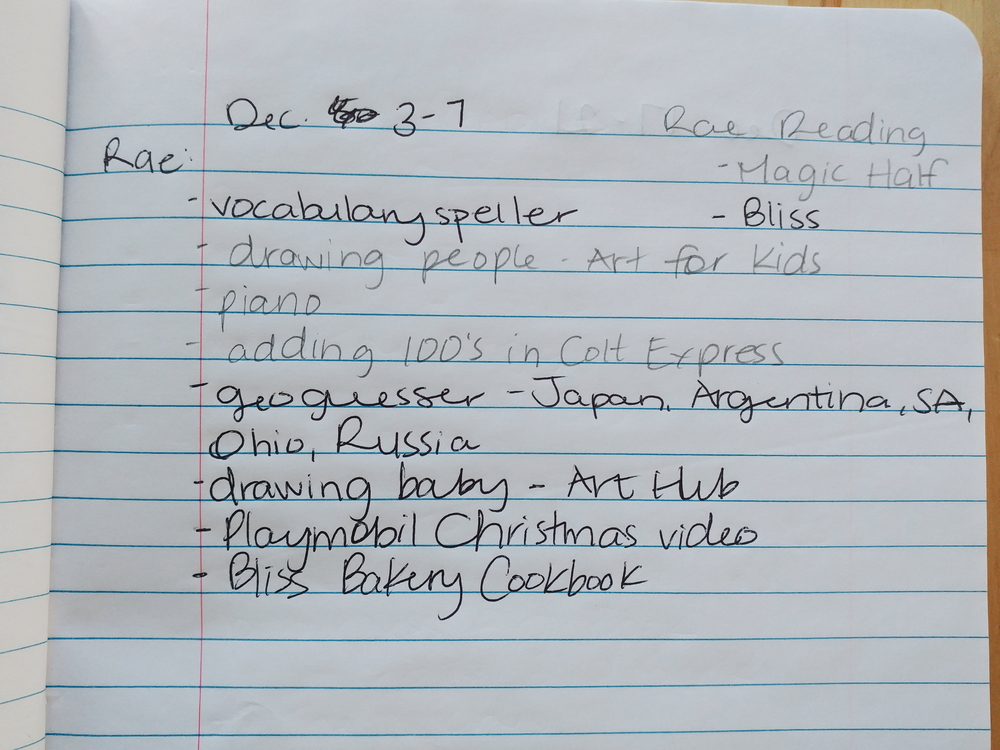 Dec. 3-7
Rae Reading
- Magic Half
- Bliss
Rae:
- vocabulary speller
- drawing people - Art for Kids
- piano
- adding 100's in Colt Express
- geoguesser - Japan, Argentina, SA,
Ohio, Russia
- drawing baby - Art Hub
- Playmobil Christmas video
- Bliss Bakery Cookbook